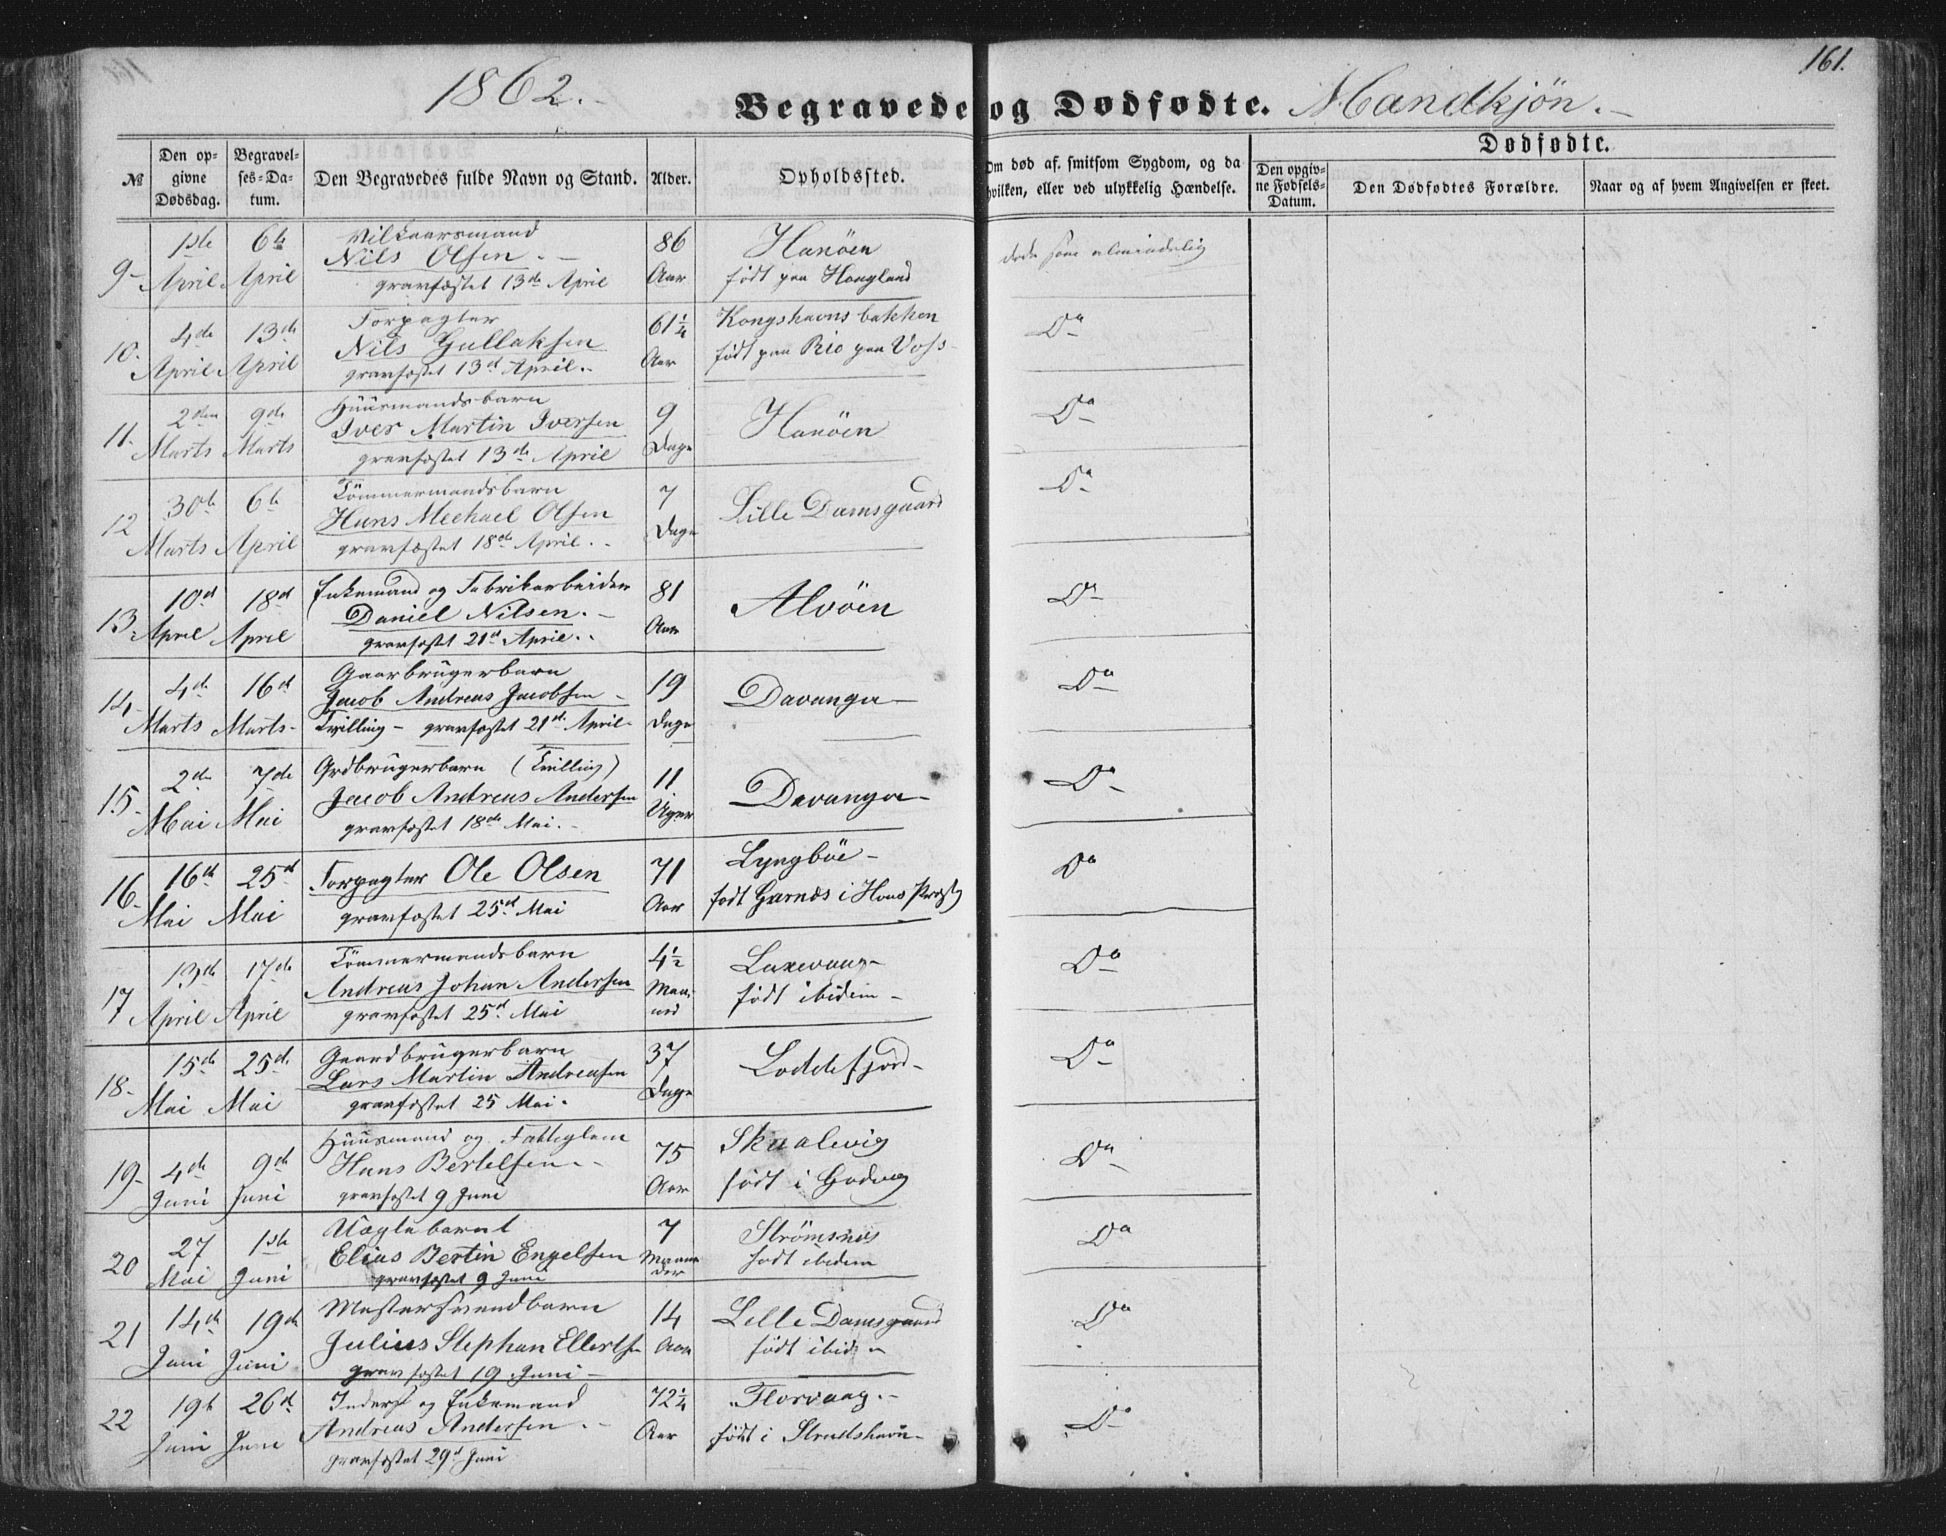 161.
1862.
Begravede og Dødfødte. Mandkjøn.
№
Den opgivne Dødsdag.
Begravelses-Datum.
Den Begravedes fulde Navn og Stand.
Alder.
Opholdssted.
Om død af smitsom Sygdom, og da hvilken, eller ved ulykkelig Hændelse.
Dødfødte.
Den opgivne Fødsels-Datum.
Den Dødfødtes Forældre.
Naar og af hvem Angivelsen er skeet.
9 1ste April 6te April Vilkaarsmand
Nils Olsen.
gravfæstet 13de April
86 Aar
Hanøen
født paa Haagland
døde som almindelig
10. 4de April 13de April Forpagter
Nils Gullaksen
gravfæstet 13de April.
61¼ Aar
Kongshavns bakken
født paa Rio paa Voss
Do
11. 2den Marts 9de Marts Huusmandsbarn
Iver Martin Iversen
gravfæstet 13de April
9 Dage
Hanøen
Do
12 30te Marts 6te April Tømmermandsbarn
Hans Mechael Olsen
gravfæstet 18de April.
7 Dage
Lille Damsgaard
Do
13. 10de April 18de April Enkemand og Fabrikarbeider
Daniel Nilsen.
gravfæstet 21de April.
81 Aar
Alvøen
Do
14. 4de Marts 16de Marts Gaarbrugerbarn
Jacob Andreas Jacobsen
Tvilling - gravfæstet 21de April
19 Dage
Davanger
Do
15. 2de Mai 7de Mai Grdbrugerbarn (Tvilling)
Jacob Andreas Andersen
gravfæstet 18de Mai.
11 Uger
Davanger
Do
16. 16de Mai 25de Mai Forpagter Ole Olsen
gravfæstet 25de Mai
71 Aar
Lyngbøe
født Garnæs i Hous Præstg
Do
17 13de April 17de April Tømmermandsbarn
Andreas Johan Andersen
gravfæstet 25de Mai
4½ Maaned
Laxevaag
født ibidem
Do
18. 15de Mai 25de Mai Gaardbrugerbarn
Lars Martin Andreasen
gravfæstet 25 Mai.
37 Dage
Loddefjord
Do
19 4de Juni 9de Juni Huusmand og Fattiglem
Hans Bertelsen.
gravfæstet 9 Juni
75 Aar
Skaalevig
født i Godvig
Do
20 27 Mai 1ste Juni Uægte barnt
Elias Bertin Engelsen
gravfæstet 9 Juni
7 Maaneder
Strømsnes
født ibidem
Do
21 14de Juni 19de Juni Mestersvendbarn
Julius Stephan Ellertsen
gravfæstet 19 Juni
14 Aar
Lille Damsgaard
født ibid
Do
22 19de Juni 26de Juni Inderst og Enkemand
Andreas Andersen.
gravfæstet 29de Juni
72¼ Aar
Florvaag.
født i Strudshavn
Do